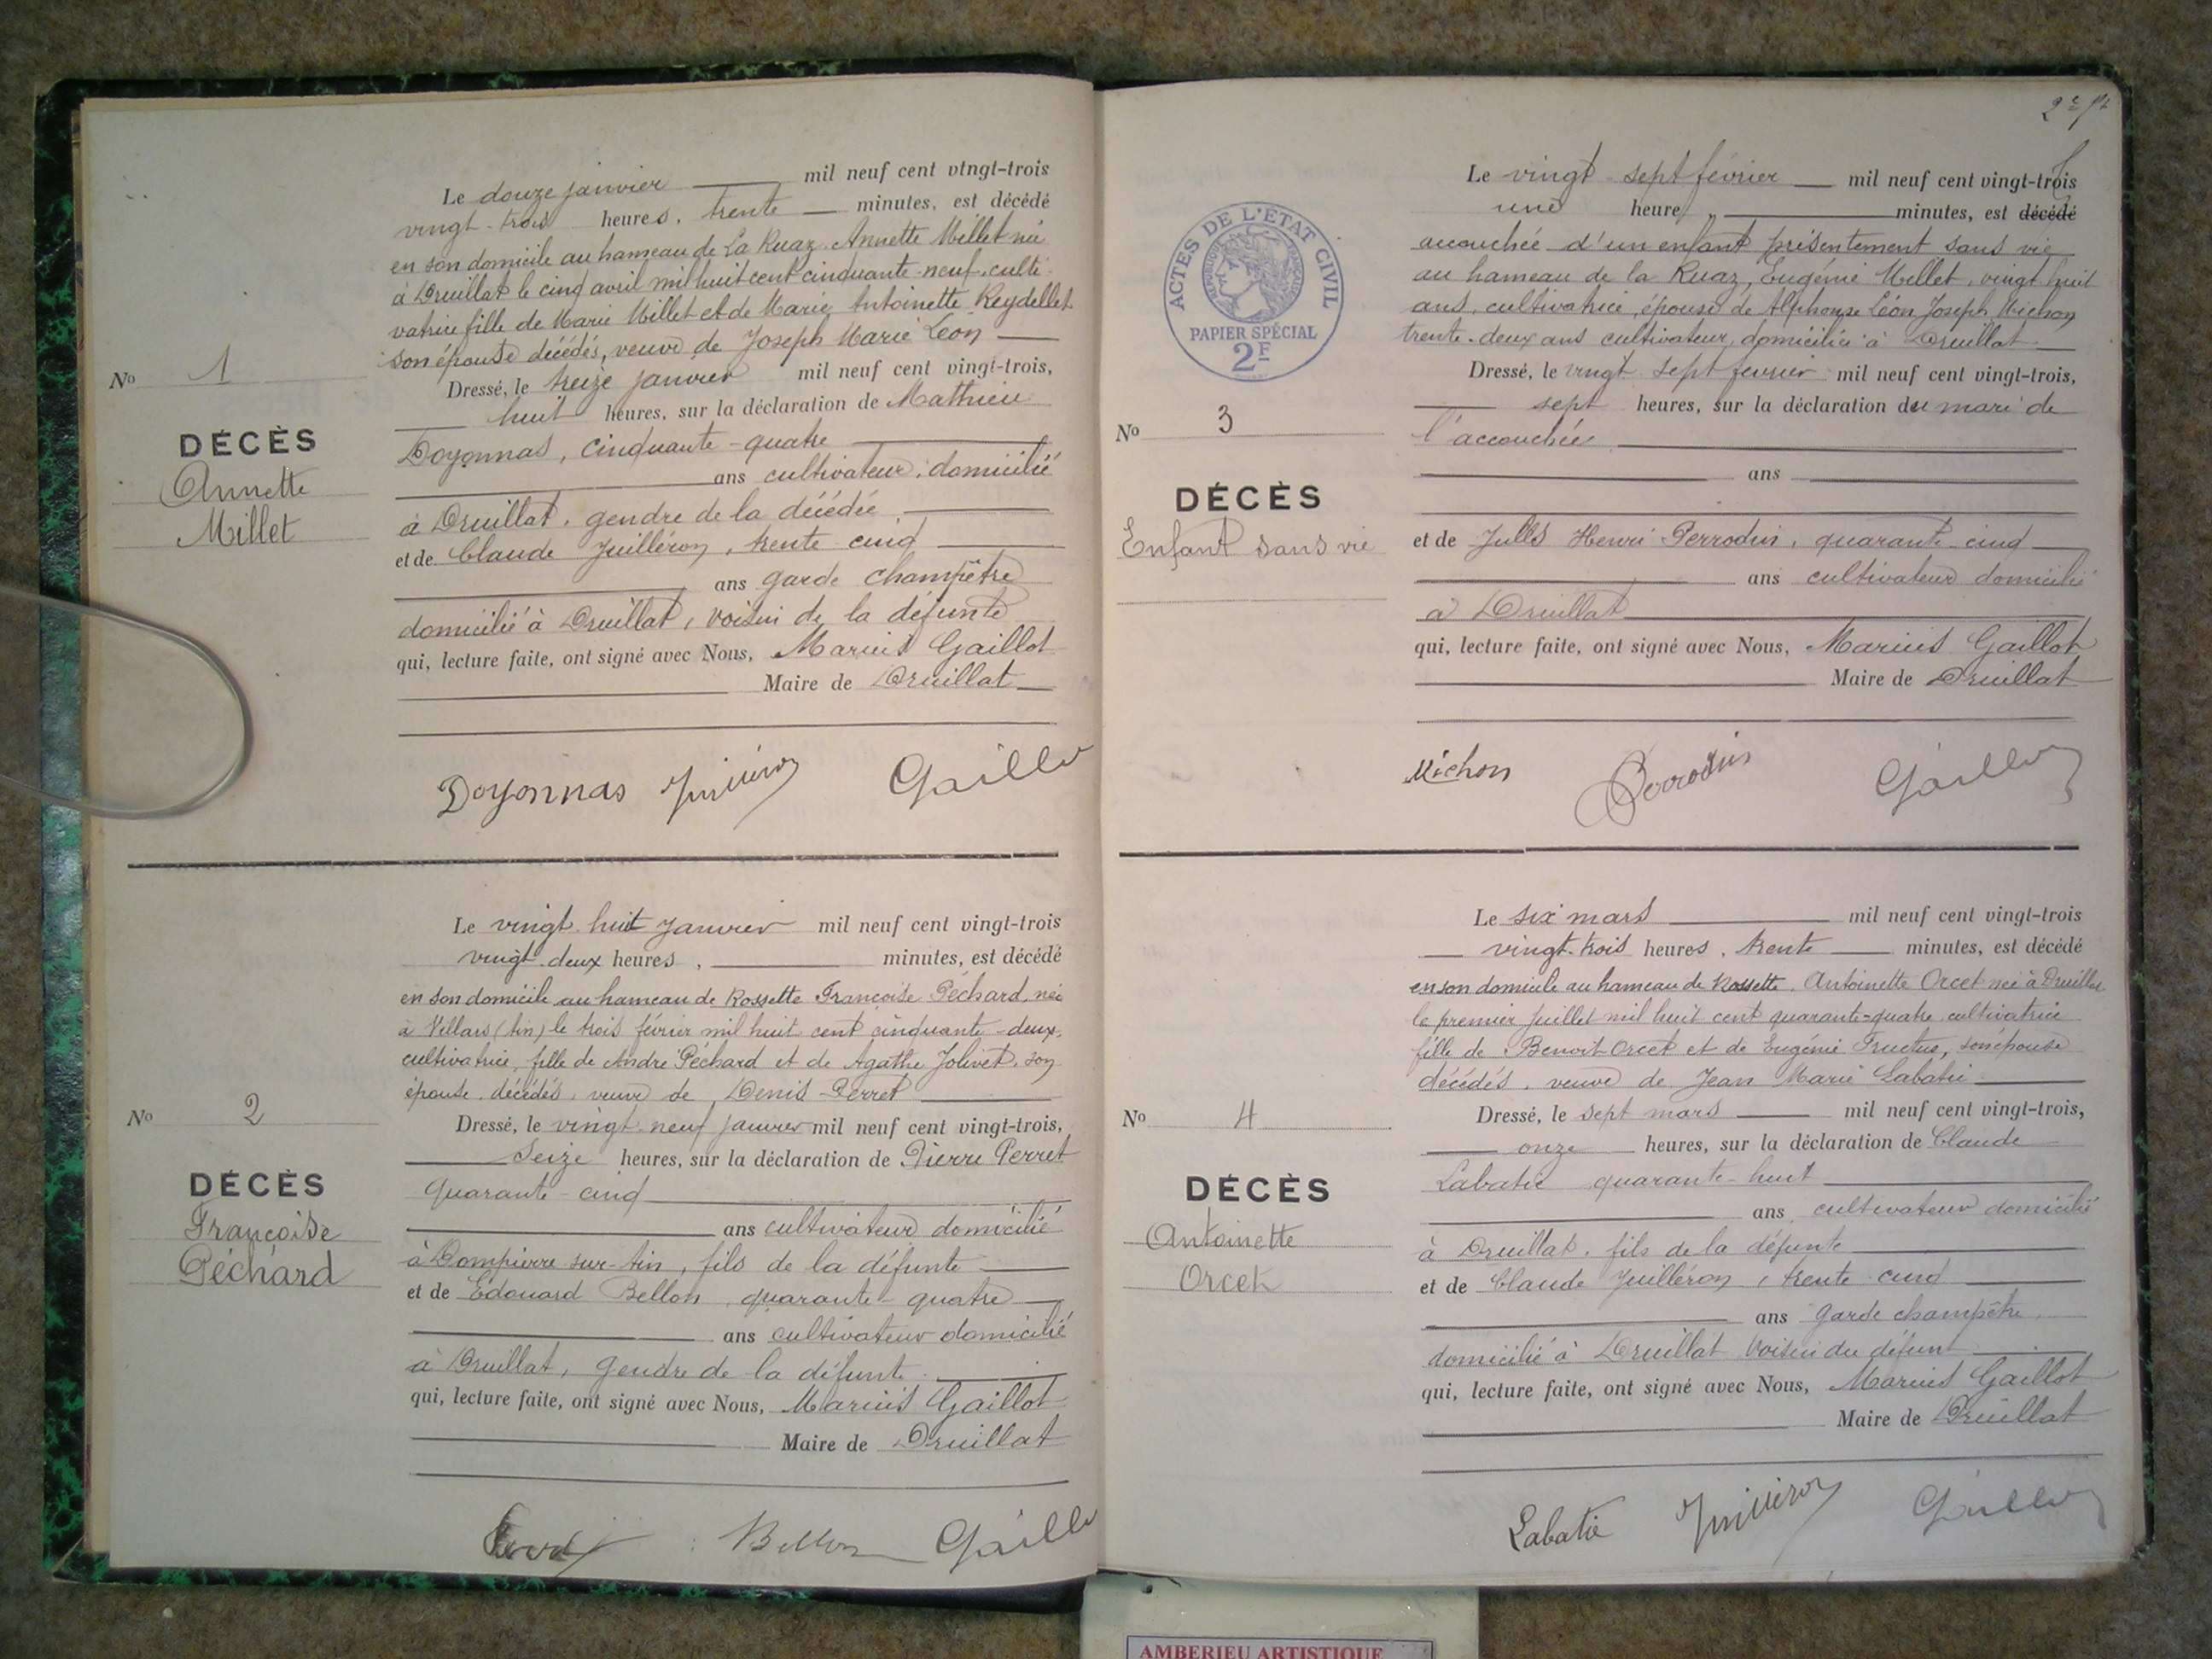 Le douze janvier mil neuf cent vingt-trois
vingt-trois heures, trente minutes, est décédé
en son domicile au hameau de La Ruaz Annette Millet née
à Druillat le cinq avril mil huit cent cinquante-neuf, culti-
vatrice fille de Marie Millet et de Marie Antoinette Reydellet
son épouse décédés, veuve de Joseph Marie Léon
Dressé, le treize janvier mil neuf cent vingt-trois,
huit heures, sur la déclaration de Mathieu
Doyonnas, cinquante-quatre
ans cultivateur, domicilié
à Druillat, gendre de la décédée
et de Claude Juilléron, trente cinq
ans garde champêtre
domicilié à Druillat, voisin de la défunte
qui, lecture faite, ont signé avec Nous, Marius Gaillot
Maire de Druillat
No 1
DÉCÈS
Annette
Millet
Doyonnas Juilléron Gaillot
Le vingt huit janvier mil neuf cent vingt-trois
vingt-deux heures, minutes, est décédé
en son domicile au hameau de Rossette Françoise Péchard, née
à Villars (Ain) le trois février mil huit cent cinquante-deux,
cultivatrice, fille de André Péchard et de Agathe Jolivet, son
épouse, décédés, veuve de Denis Perret
Dressé, le vingt-neuf janvier mil neuf cent vingt-trois,
Seize heures, sur la déclaration de Pierre Perret
quarante-cinq
ans cultivateur domicilié
à Dompierre sur-Ain, fils de la défunte
et de Edouard Bellon, quarante-quatre
ans cultivateur domicilié
à Druillat, gendre de la défunte
qui, lecture faite, ont signé avec Nous, Marius Gaillot
Maire de Druillat
No 2
DÉCÈS
Françoise
Péchard
Bellon Gaillot
ACTES DE L'ETAT CIVIL
PAPIER SPÉCIAL
2F
Le vingt-sept février mil neuf cent vingt-trois
une heure minutes, est décédé
accouchée d'un enfant présentement sans vie
au hameau de la Ruaz, Eugénie Millet, vingt huit
ans, cultivatrice, épouse de Alphonse Léon Joseph Michon
trente-deux ans cultivateur, domiciliés à Druillat
Dressé, le vingt-sept février mil neuf cent vingt-trois,
sept heures, sur la déclaration du mari de
l'accouchée
ans
et de Jules Henri Perrodin, quarante-cinq
ans cultivateur domicilié
à Druillat
qui, lecture faite, ont signé avec Nous, Marius Gaillot
Maire de Druillat
No 3
DÉCÈS
Enfant sans vie
Michon Perrodin Gaillot
Le six mars mil neuf cent vingt-trois
vingt-trois heures, trente minutes, est décédé
en son domicile au hameau de Rossette, Antoinette Orcet née à Druillat
le premier juillet mil huit cent quarante-quatre cultivatrice
fille de Benoit Orcet et de Eugénie Fructus, son épouse
décédés, veuve de Jean Marie Labatie
Dressé, le sept mars mil neuf cent vingt-trois,
onze heures, sur la déclaration de Claude
Labatie quarante-huit
ans cultivateur domicilié
à Druillat, fils de la défunte
et de Claude Juilléron, trente-cinq
ans garde champêtre
domicilié à Druillat voisin du défunt
qui, lecture faite, ont signé avec Nous, Marius Gaillot
Maire de Druillat
No 4
DÉCÈS
Antoinette
Orcet
Labatie Juilléron Gaillot
AMBERIEU ARTISTIQUE